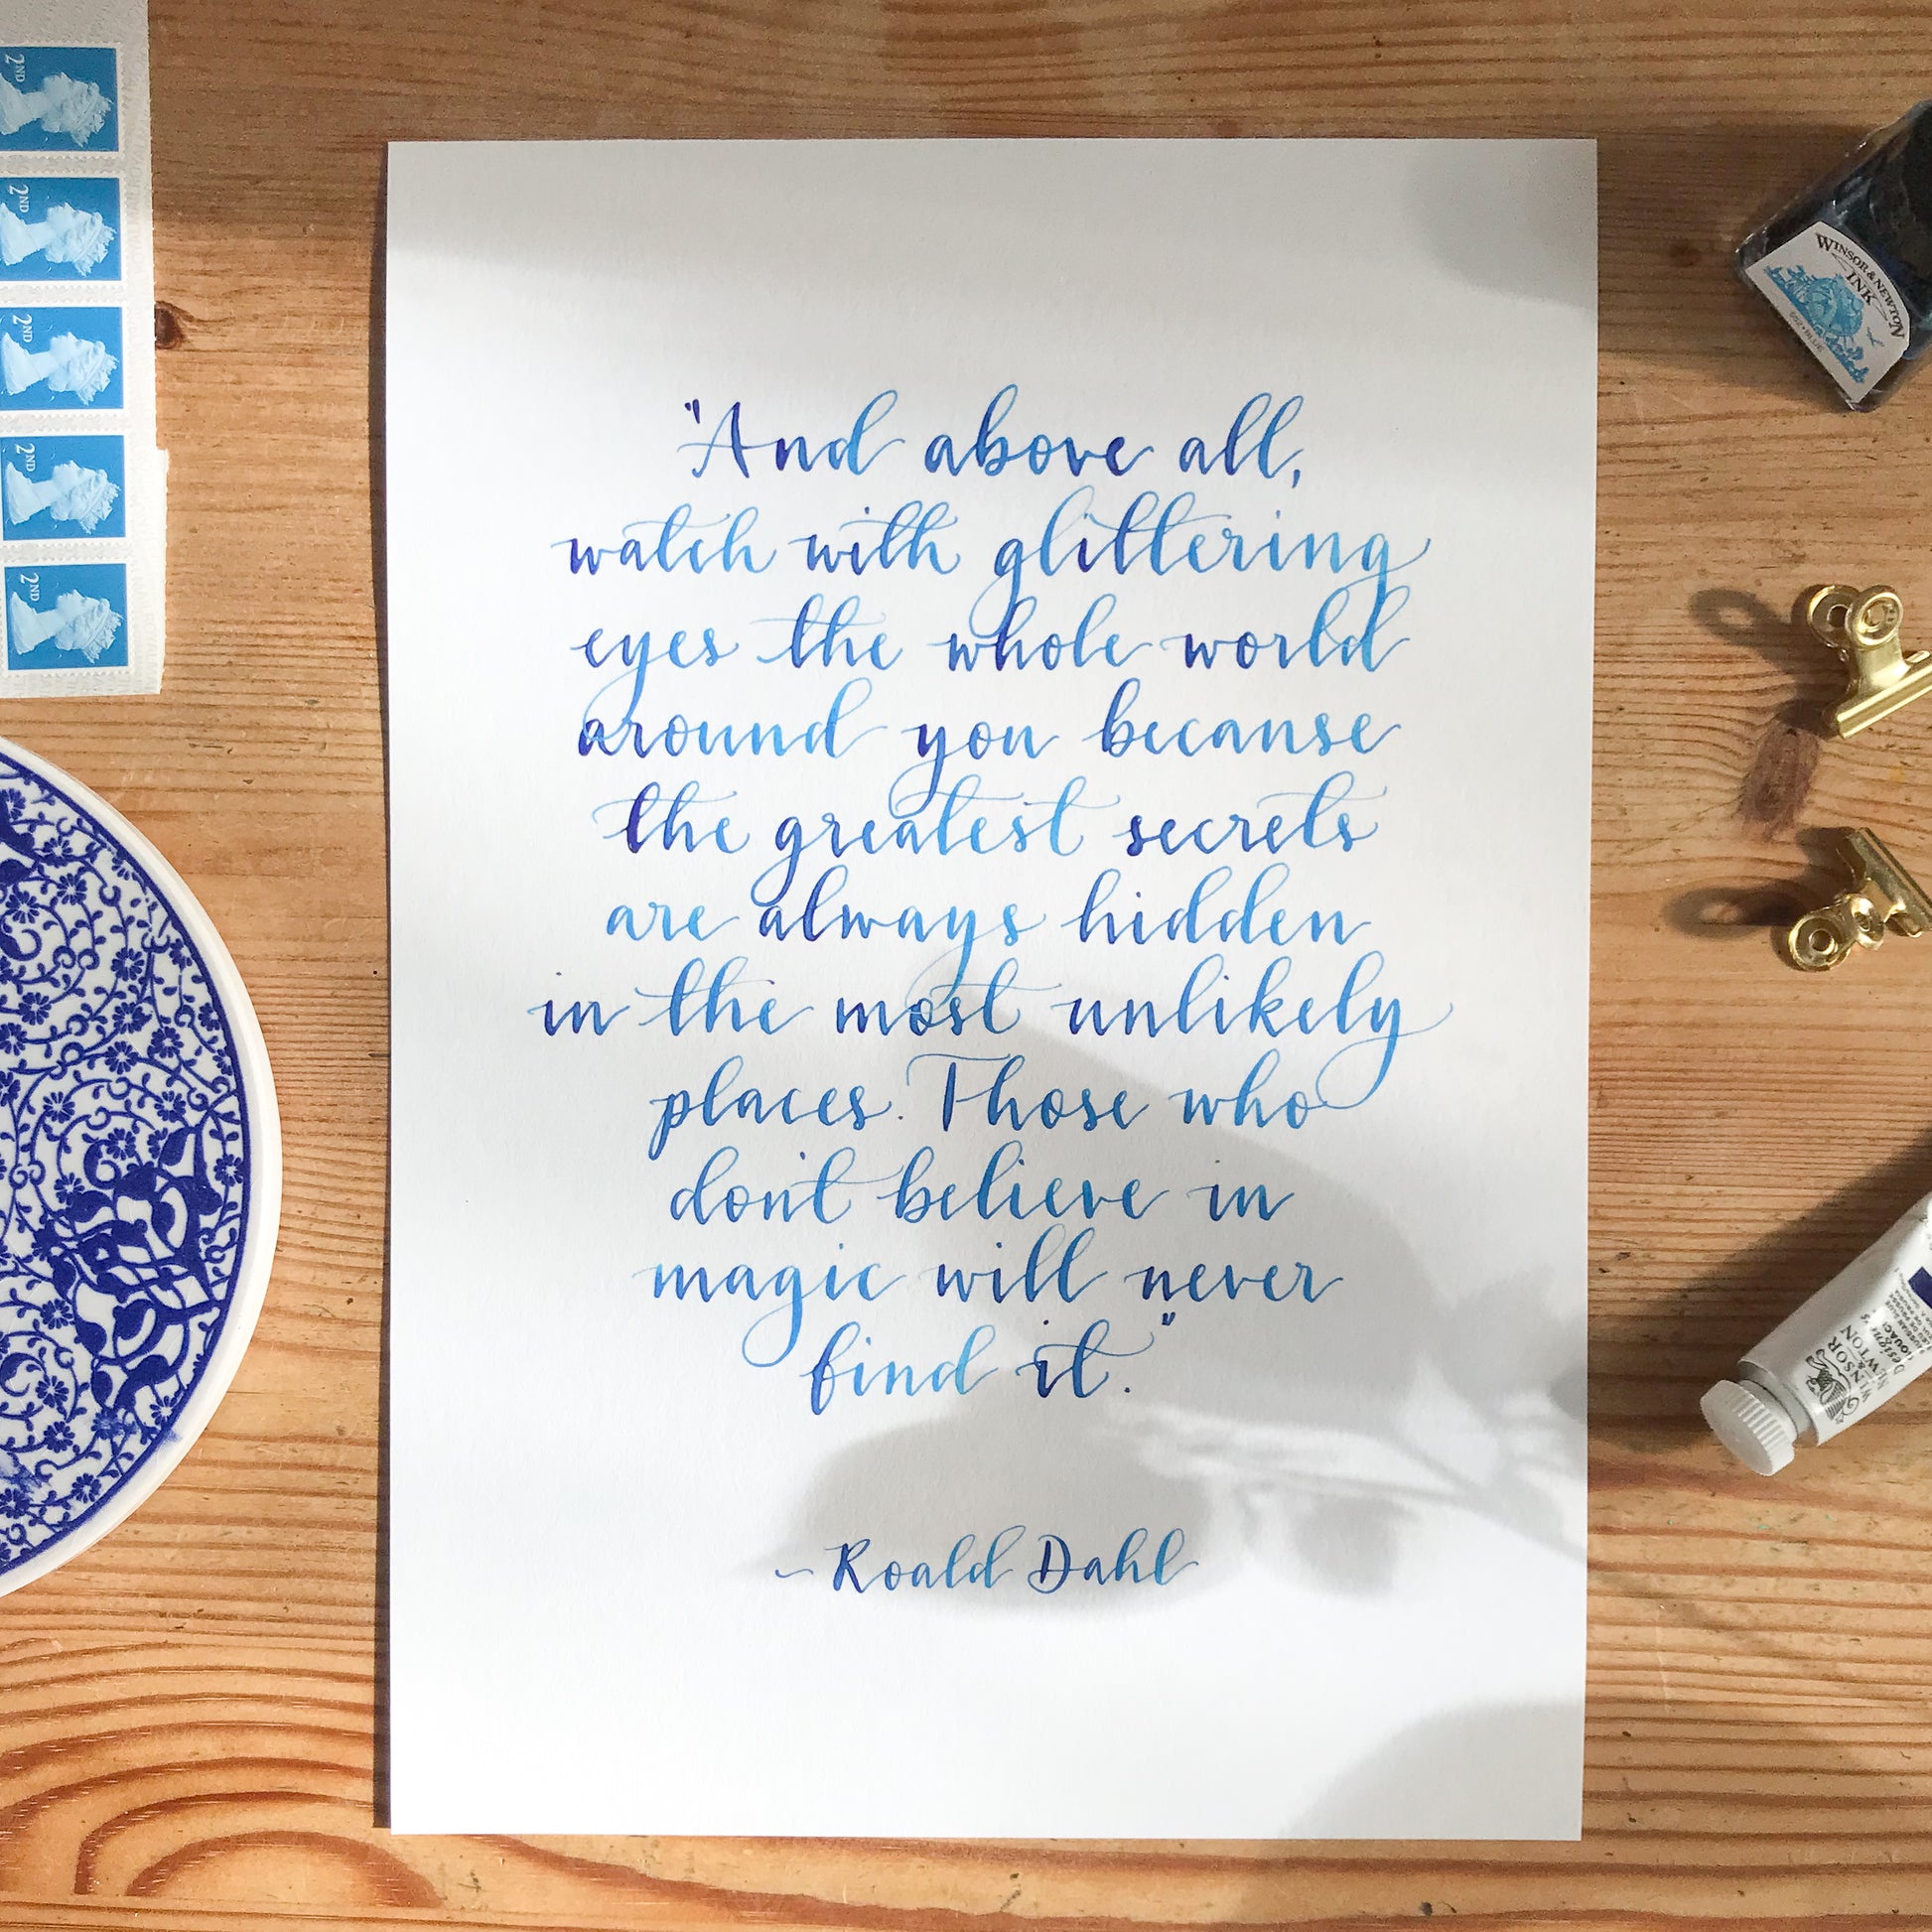 "And above all,
watch with glittering
eyes the whole world
around you because
the greatest secrets
are always hidden
in the most unlikely
places. Those who
don't believe in
magic will never
find it."
~Roald Dahl
2ND
2ND
2ND
2ND
2ND
WINSOR & NEWTON
INK
WINSOR
&
NEWTON
Designers